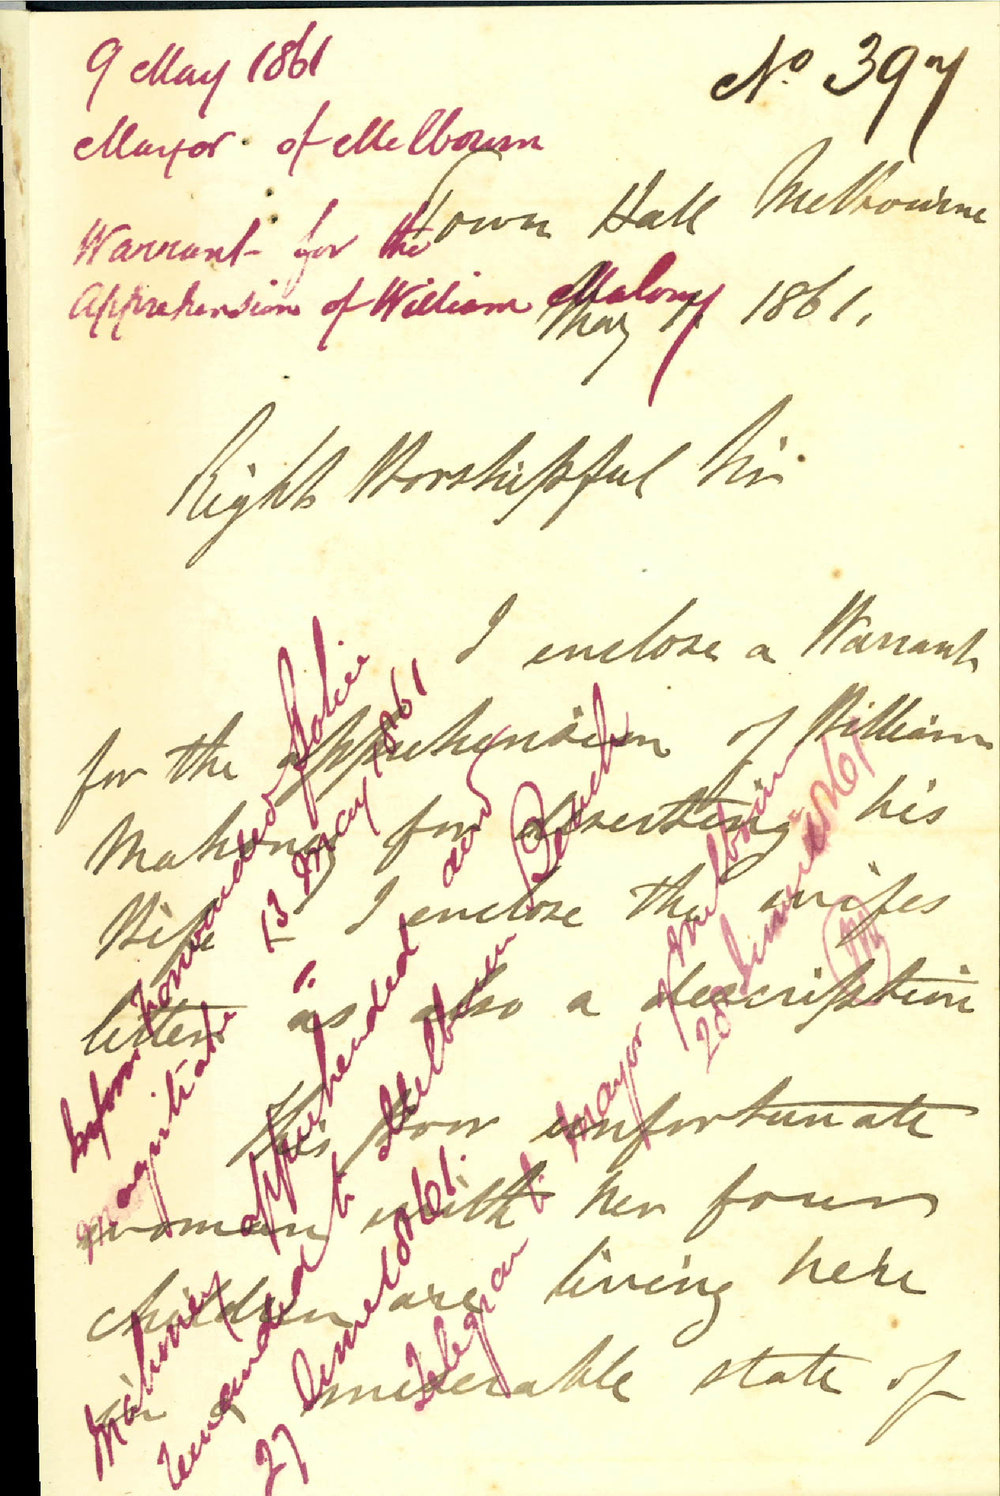 9 May 1861
No 397
Mayor of Melbourn
Town Hall Melbourne
Warrant for the
Apprehension of William Malony
May 7. 1861.
Right Worshipful Sir
I enclose a Warrant
for the apprehension of William
Mahony for deserting his
Wife - I enclose the wifes
letter as also a description
This poor unfortunate
woman with her four
children are living here
in a miserable state of
Inform forwarded Police
Magistrate 13 May 1861
Mahoney apprehended and
remanded to Melbourn Bench
27 June 1861.
Telegram to Mayor Melbourn
28 June 1861